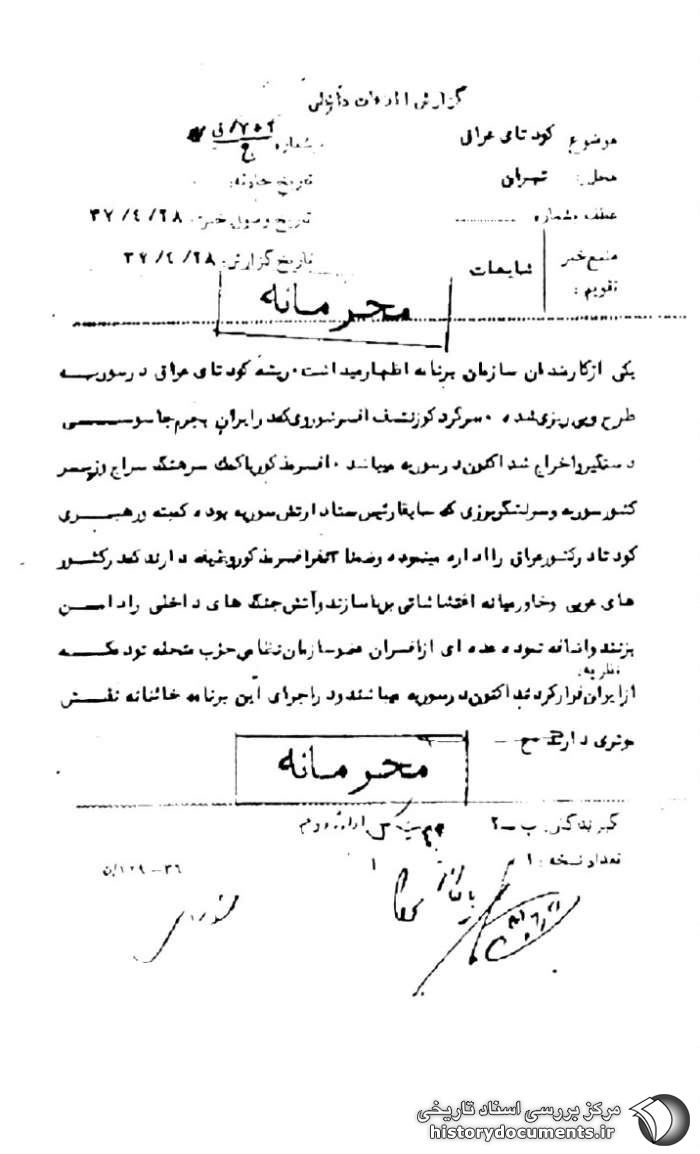 گزارش اطلاعات داخلی
موضوع کودتای عراق
شماره
محل: تهران
تاریخ حادثه:
عطف بشماره
تاریخ وصول خبر: ۳۷/۴/۲۸
منبع خبر شایعات
تاریخ گزارش: ۳۷/۴/۲۸
تقویم:
محرمانه
یکی از کارمندان سازمان برنامه اظهار میداشت ریشه کودتای عراق در سوریه
طرح و پی ریزی شده سرگرد افسر سوری که در ایران بجرم جاسوسی
دستگیر و اخراج شد اکنون در سوریه میباشد افسر مذکور با کمک سرهنگ سراج وزیر
کشور سوریه و سرلشگر بزری که سابقا رئیس ستاد ارتش سوریه بوده کمیته و رهبری
کودتا در کشور عراق را اداره مینموده و ضمنا افسر مذکور وظیفه دارند که در کشور
های عربی و خاورمیانه اغتشاشاتی برپا سازند و آتش جنگ های داخلی را دامن
بزنند و اضافه نموده عده ای از افسران عضو سازمان نظامی حزب منحله توده که
نظریه:
از ایران فرار کردند اکنون در سوریه میباشند و در اجرای این برنامه خائنانه نقش
موثری دارند
محرمانه
گیرندگان: ب -۲
اداره دوم
تعداد نسخه: ۱
۳۶-۱۲۹/۵
مرکز بررسی اسناد تاریخی
historydocuments.ir